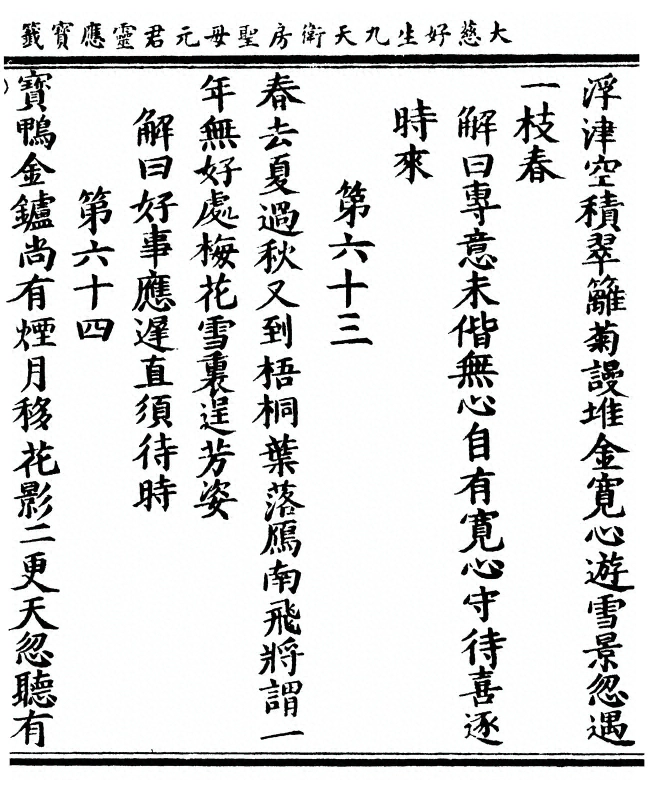 大慈好生九天衛房聖母元君靈應寶籤
浮津空積翠籬菊謾堆金寬心遊雪景忽遇
一枝春
解曰專意未偕無心自有寬心守待喜逐
時來
第六十三
春去夏過秋又到梧桐葉落鴈南飛將謂一
年無好處梅花雪裏逞芳姿
解曰好事應遲直須待時
第六十四
寶鴨金鑪尚有煙月移花影二更天忽聽有